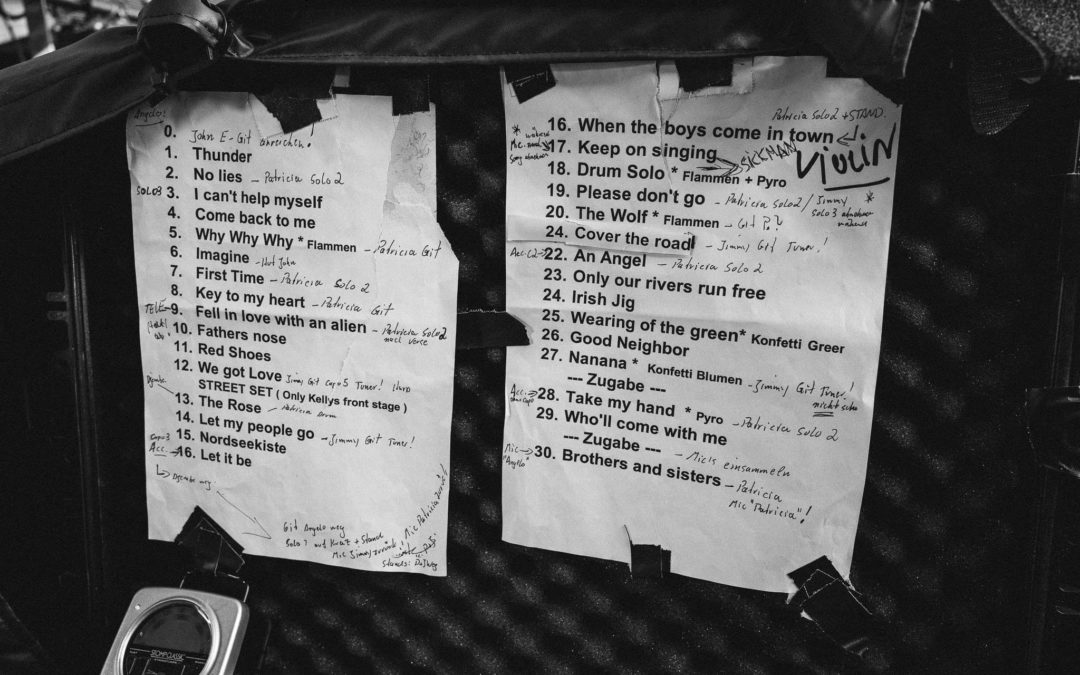 Angelo:
0. John E-Git anreichen!
1. Thunder
2. No lies - Patricia Solo 2
SOLO3 3. I can't help myself
4. Come back to me
5. Why Why Why * Flammen - Patricia Git
6. Imagine - Hut John
7. First Time - Patricia Solo 2
8. Key to my heart - Patricia Git
TELE 9. Fell in love with an alien - Patricia Solo2
nach verse
10. Fathers nose
11. Red Shoes
12. We got Love Jimmy Git Capo5 Tuner!
STREET SET ( Only Kellys front stage )
Djembe 13. The Rose - Patricia Drum
14. Let my people go - Jimmy Git Tuner!
Capo3 15. Nordseekiste
Acc. 16. Let it be
Djembe weg
Git Angelo weg
Mic Jimmy zurück!
Mic Patricia zurück!
Stands:
STOMPCLASSIC
Patricia Solo 2 + STAND
16. When the boys come in town
VIOLIN
17. Keep on singing SICKMAN
18. Drum Solo * Flammen + Pyro
19. Please don't go - Patricia Solo2 / Jimmy *
Solo 3
20. The Wolf * Flammen - Git P.?
24. Cover the road - Jimmy Git Tuner!
22. An Angel - Patricia Solo 2
23. Only our rivers run free
24. Irish Jig
25. Wearing of the green* Konfetti Greer
26. Good Neighbor
27. Nanana * Konfetti Blumen - Jimmy Git Tuner!
--- Zugabe ---
Acc. 28. Take my hand * Pyro - Patricia Solo 2
29. Who'll come with me
--- Zugabe --- - Mics einsammeln
Mic "Angelo" 30. Brothers and sisters - Patricia
Mic "Patricia"!